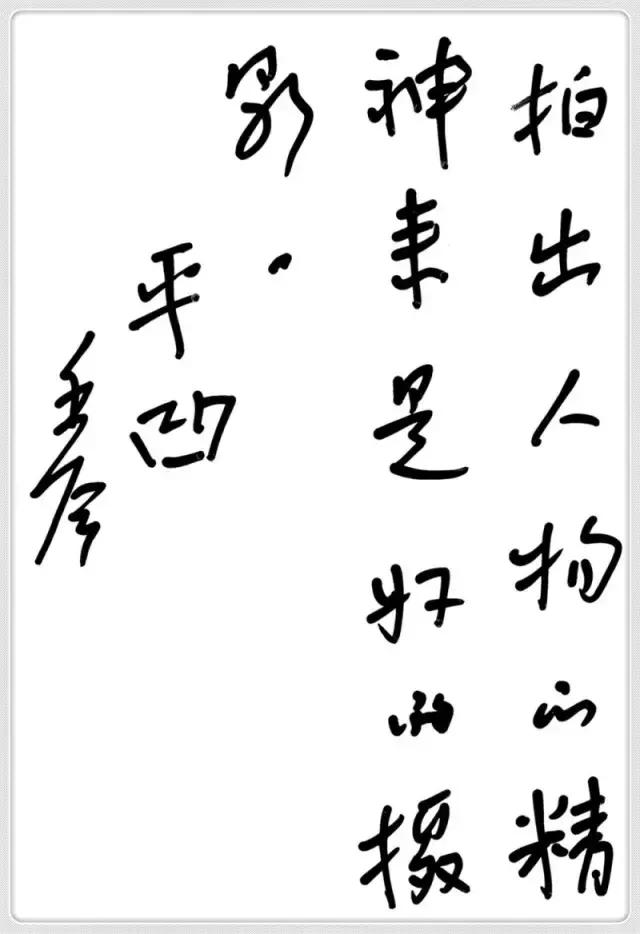 拍出人物的精
神来是好的摄
影。
平凹